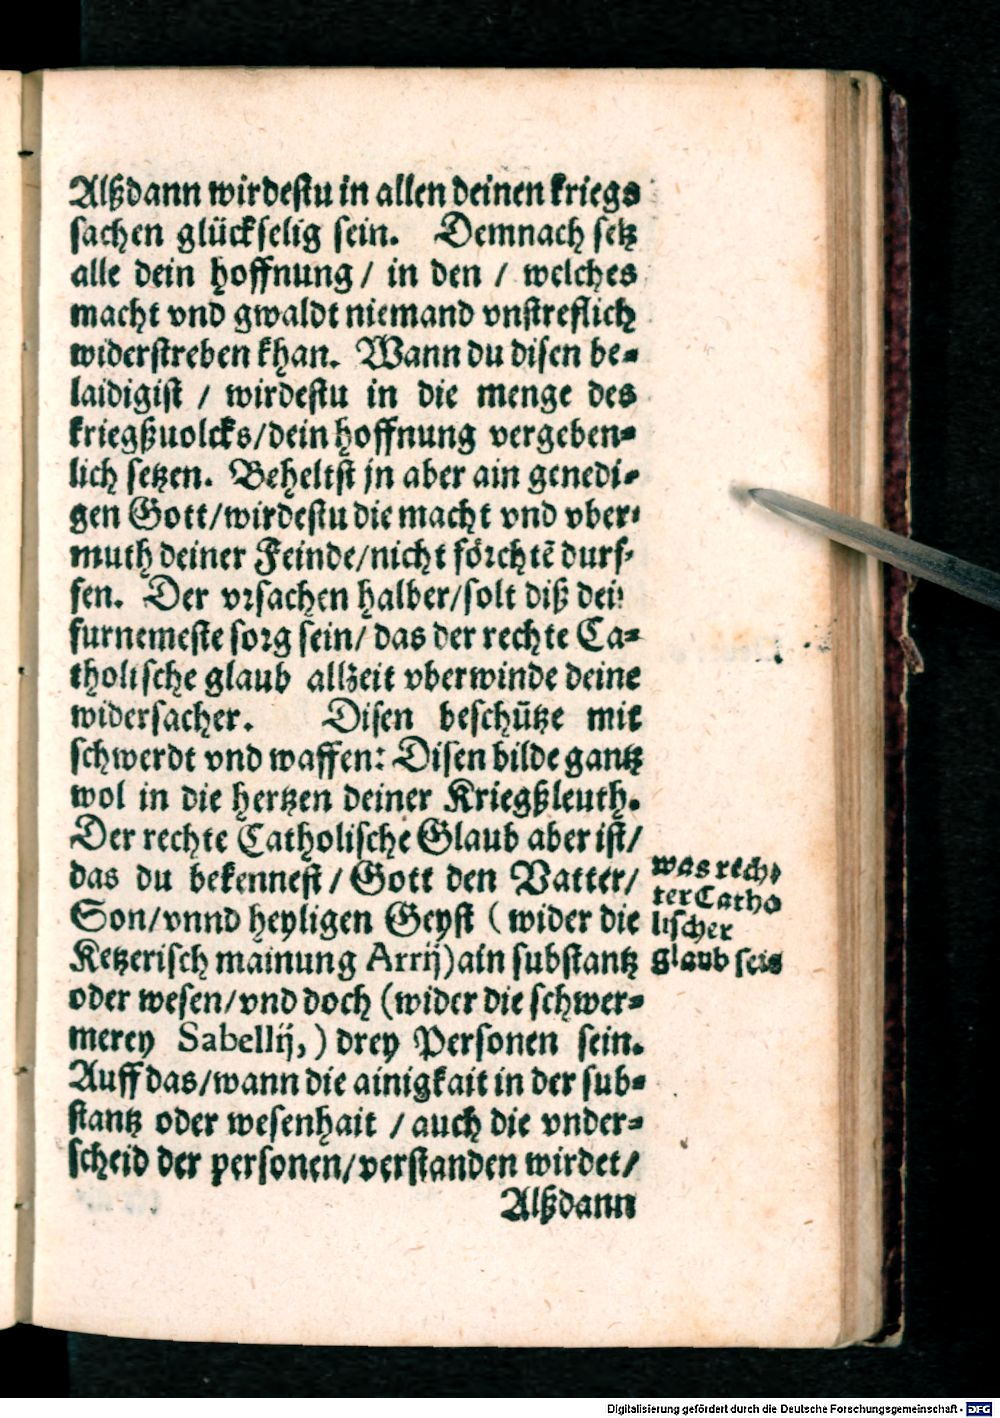 Alßdann wirdestu in allen deinen kriegs
sachen glückselig sein. Demnach setz
alle dein hoffnung / in den / welches
macht vnd gwaldt niemand vnstreflich
widerstreben khan. Wann du disen be-
laidigist / wirdestu in die menge des
kriegßuolcks/dein hoffnung vergeben-
lich setzen. Beheltst jn aber ain genedi-
gen Gott/wirdestu die macht vnd vber-
muth deiner Feinde/nicht förchtē durf-
fen. Der vrsachen halber/solt diß dein
furnemeste sorg sein/ das der rechte Ca-
tholische glaub allzeit vberwinde deine
widersacher. Disen beschütze mit
schwerdt vnd waffen: Disen bilde gantz
wol in die hertzen deiner Kriegßleuth.
Der rechte Catholische Glaub aber ist/
das du bekennest / Gott den Vatter/
Son/vnnd heyligen Geyst ( wider die
Ketzerisch mainung Arrij)ain substantz
oder wesen/vnd doch (wider die schwer-
merey Sabellij, ) drey Personen sein.
Auff das/wann die ainigkait in der sub-
stantz oder wesenhait / auch die vnder-
scheid der personen/verstanden wirdet/
Alßdann
was rech-
ter Catho
lischer
glaub seie
Digitalisierung gefördert durch die Deutsche Forschungsgemeinschaft - DFG